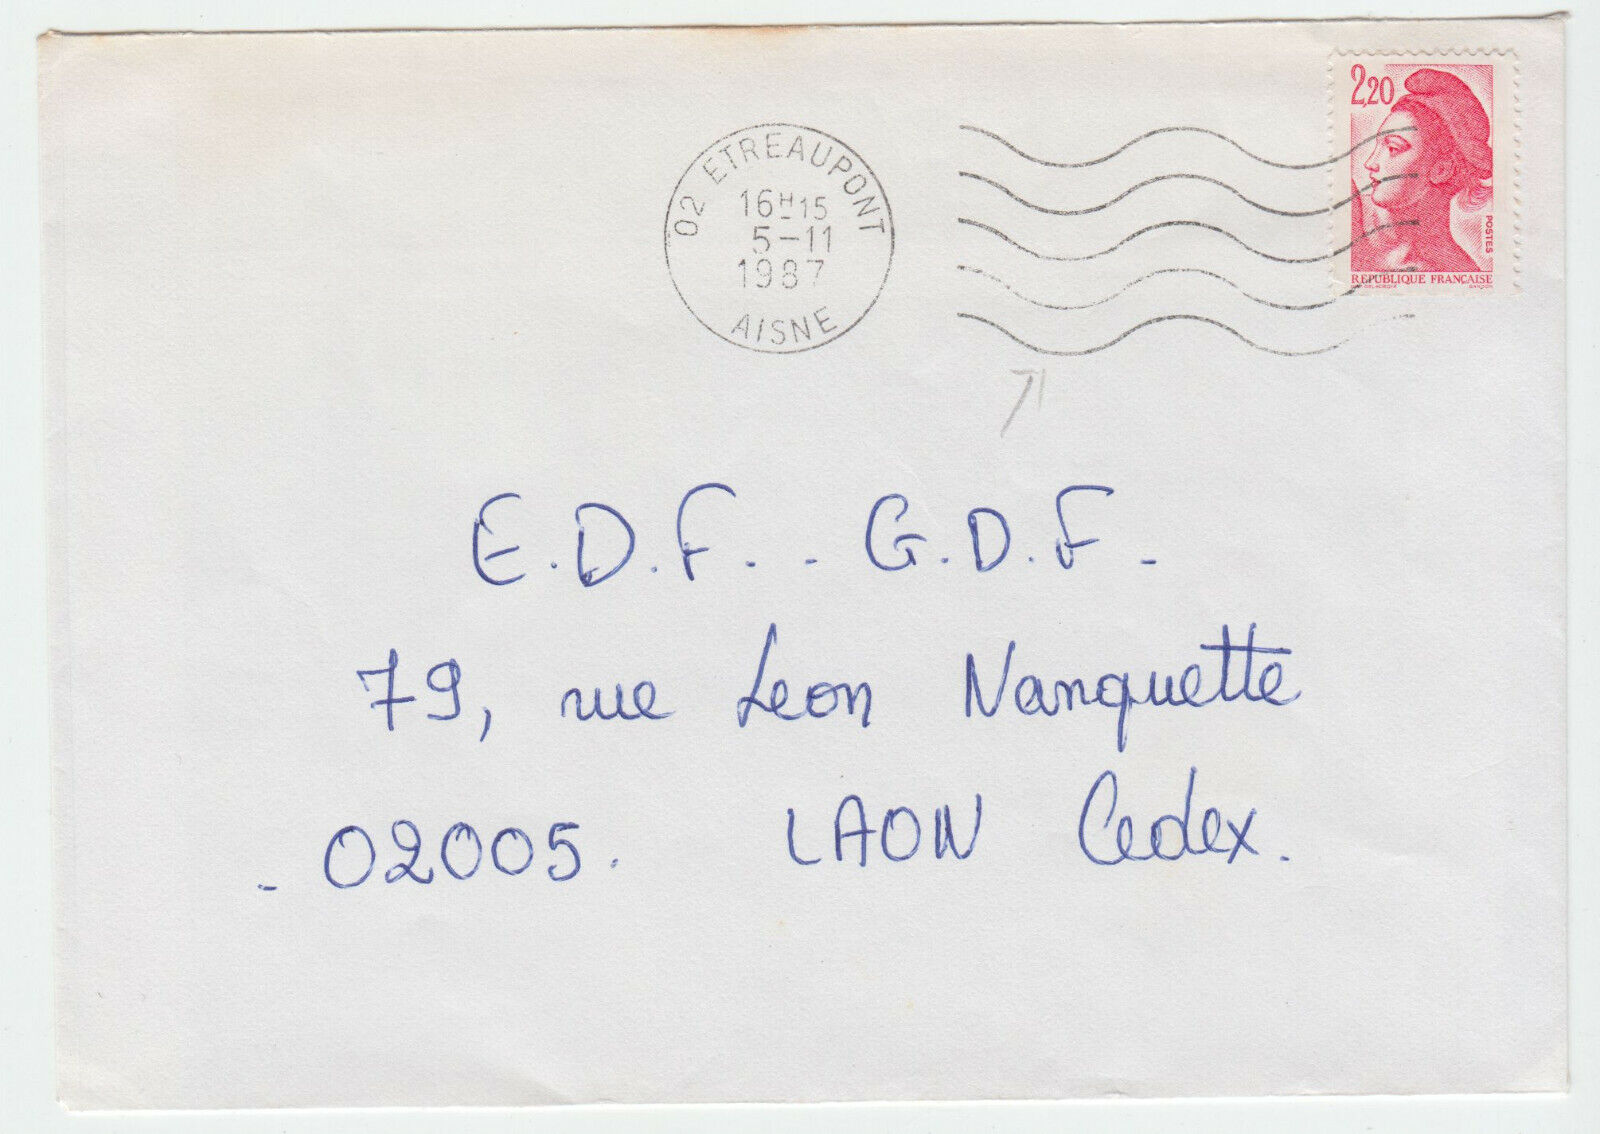 2,20
POSTES
REPUBLIQUE FRANÇAISE
DELACROIX GANDON
02 ETREAUPONT
16H15
5-11
1987
AISNE
E.D.F. - G.D.F.
79, rue Leon Nanquette
02005. LAON Cedex.